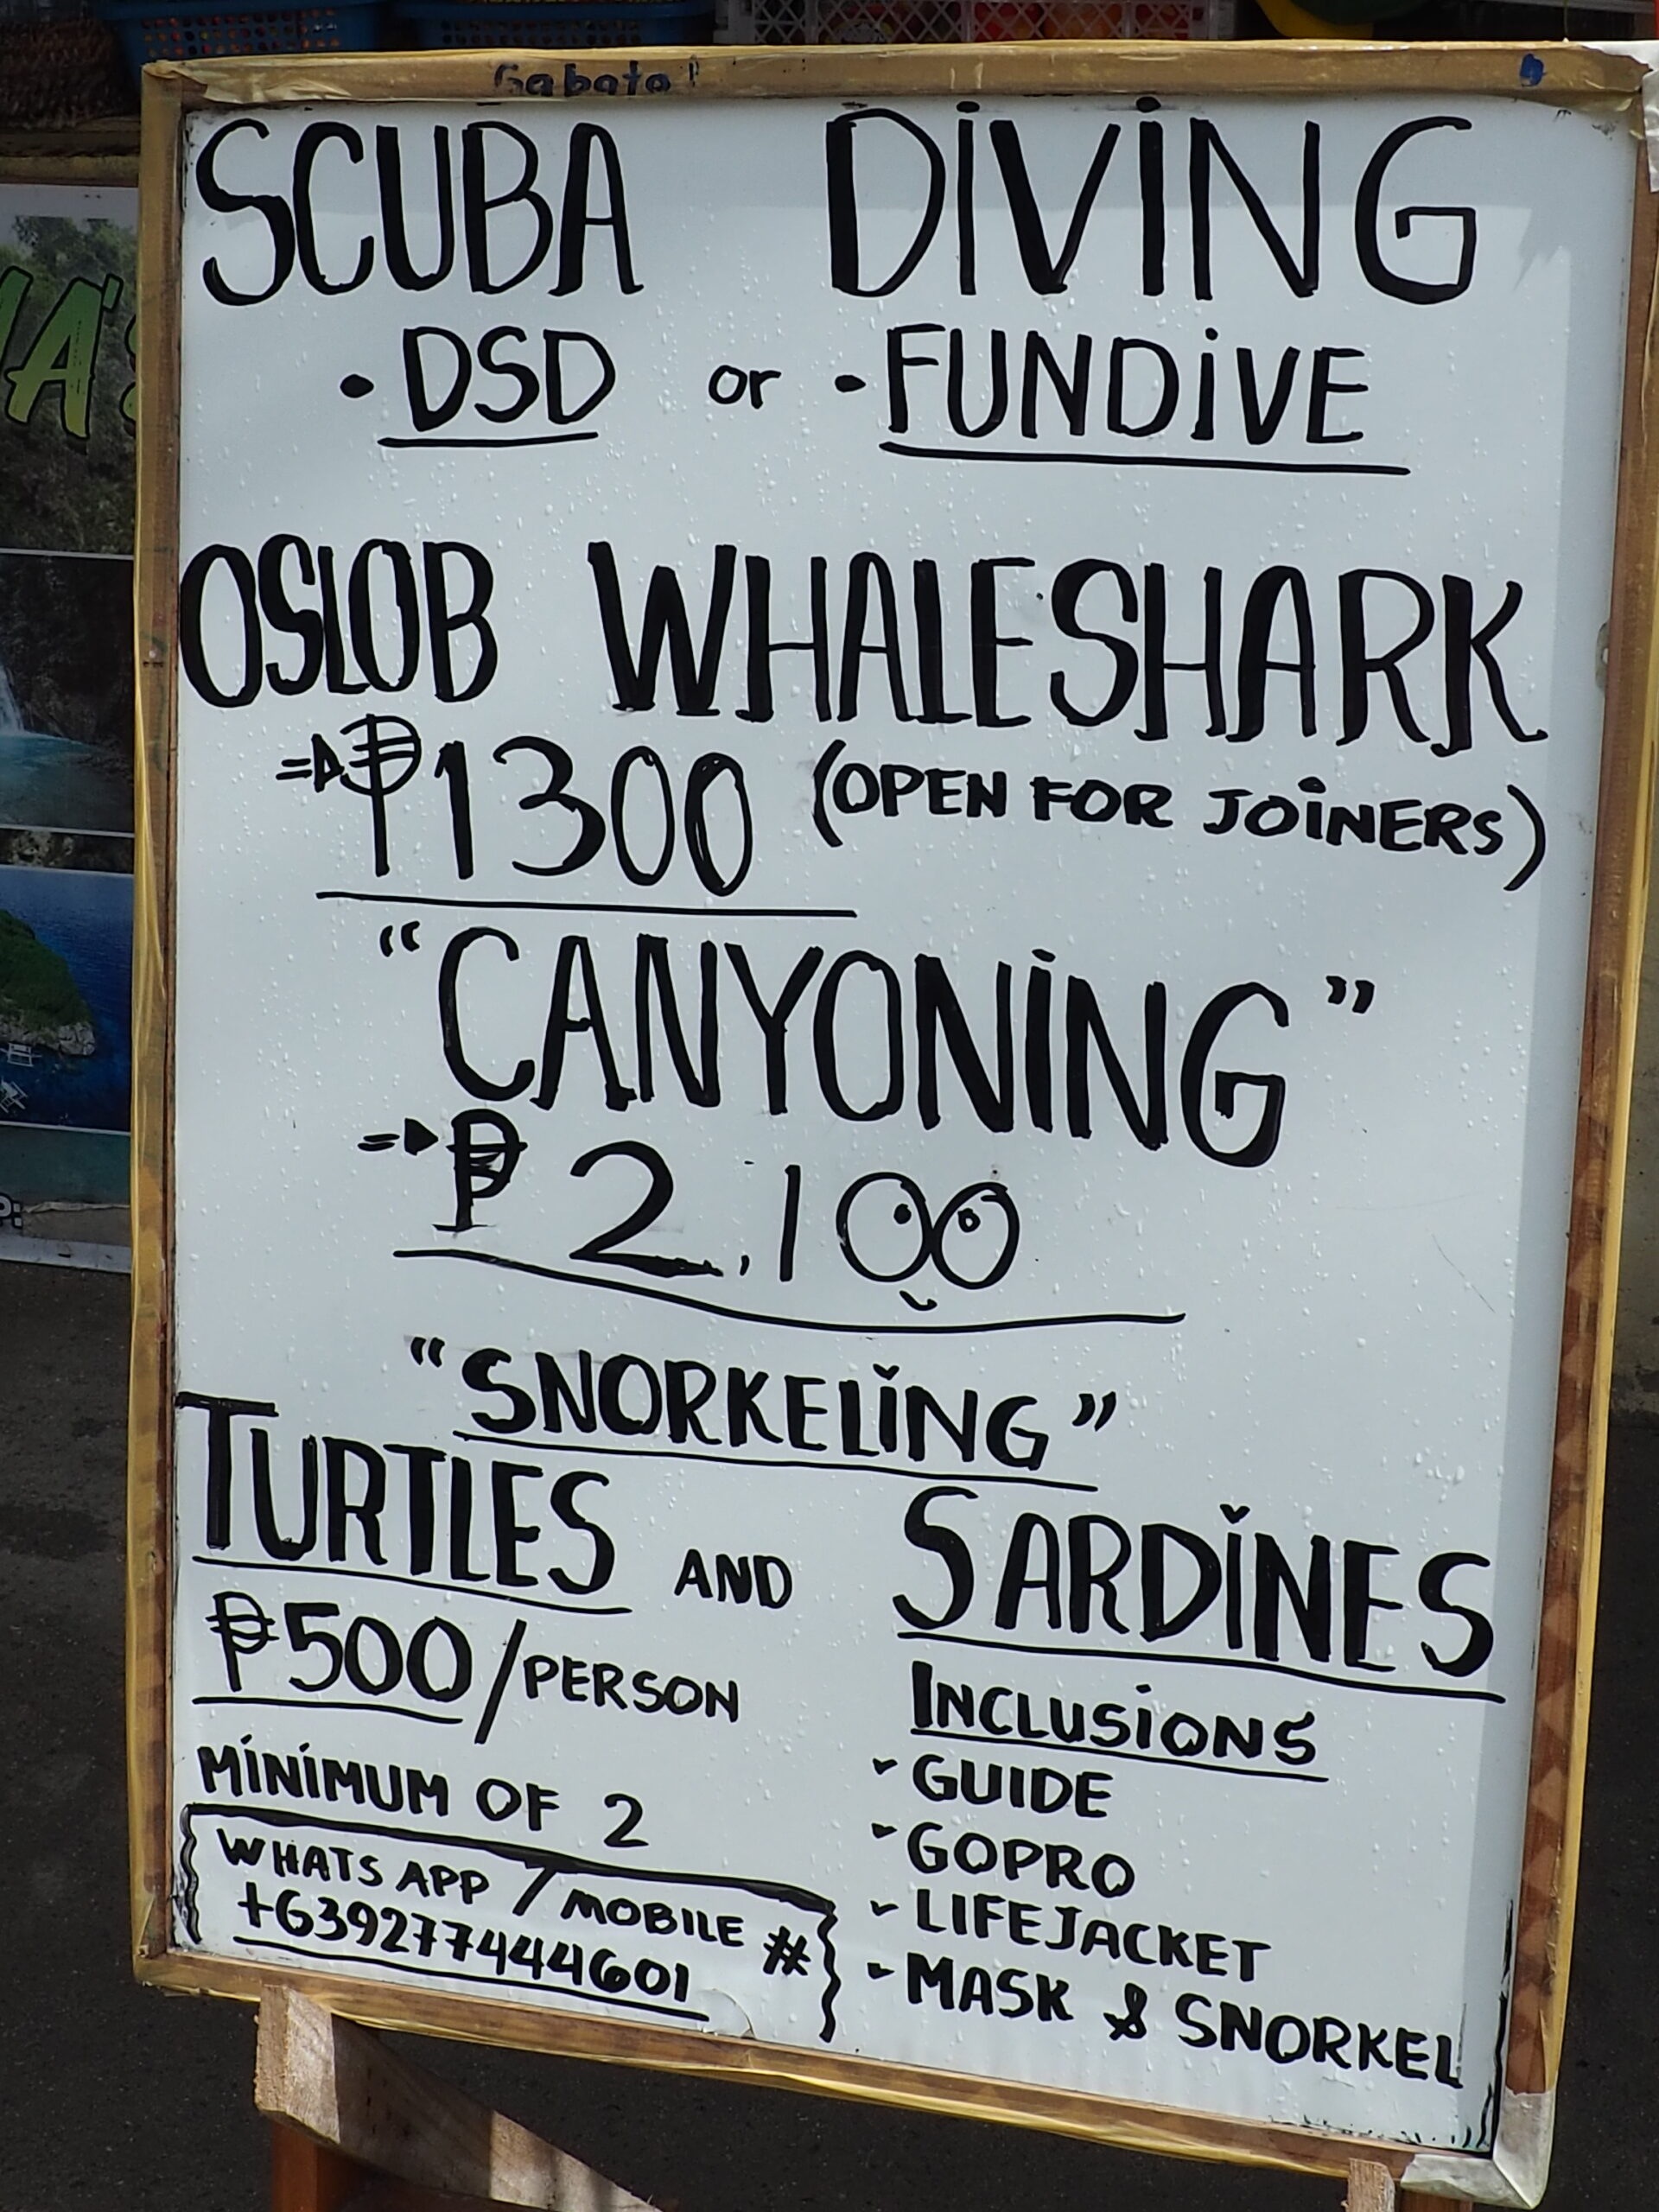 Gabato!
SCUBA DIVING
• DSD or • FUNDIVE
OSLOB WHALESHARK
⇒₱1300 (OPEN FOR JOINERS)
"CANYONING"
⇒₱ 2,100
"SNORKELING"
TURTLES AND SARDINES
₱500/PERSON
MINIMUM OF 2
WHATS APP / MOBILE #
+639277444601
INCLUSIONS
- GUIDE
- GOPRO
- LIFEJACKET
- MASK & SNORKEL